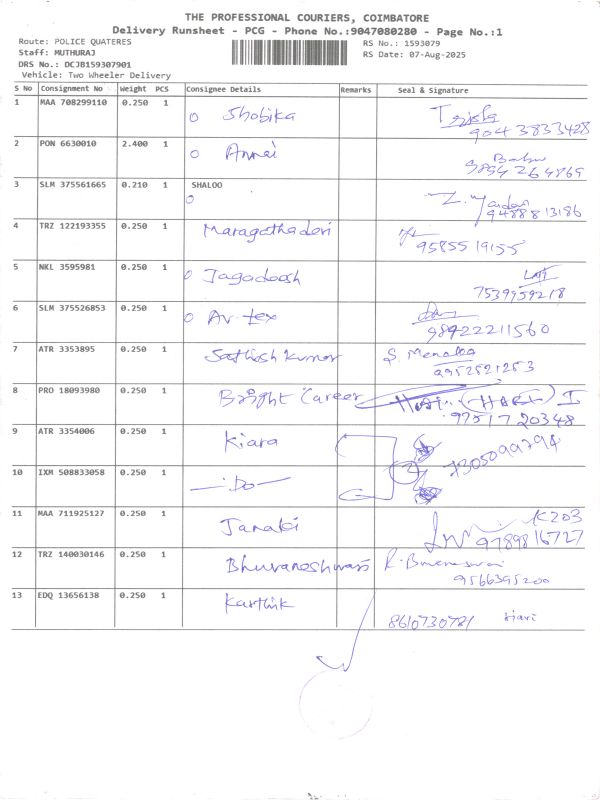 THE PROFESSIONAL COURIERS, COIMBATORE
Delivery Runsheet - PCG - Phone No.:9047080280 - Page No.:1
Route: POLICE QUATERES RS No.: 1593079
Staff: MUTHURAJ RS Date: 07-Aug-2025
DRS No.: DCJB159307901
Vehicle: Two Wheeler Delivery
S No Consignment No Weight PCS Consignee Details Remarks Seal & Signature
1 MAA 708299110 0.250 1 Shobika
9043833428
2 PON 6630010 2.400 1 Annai Babu
9894264869
3 SLM 375561665 0.210 1 SHALOO
9488813186
4 TRZ 122193355 0.250 1 Maragathadevi
9585519155
5 NKL 3595981 0.250 1 Jagadeesh
7539959218
6 SLM 375526853 0.250 1 Av tex
98422211560
7 ATR 3353895 0.250 1 Sathish Kumar S Menaka
9952521253
8 PRO 18093980 0.250 1 Bright Career (HARI) I
9751720348
9 ATR 3354006 0.250 1 Kiara
7305099794
10 IXM 508833058 0.250 1 - Do - 2
11 MAA 711925127 0.250 1 Janaki K203
9789816727
12 TRZ 140030146 0.250 1 Bhuvaneshwari
9566395200
13 EDQ 13656138 0.250 1 Karthik
8610730781 Hari